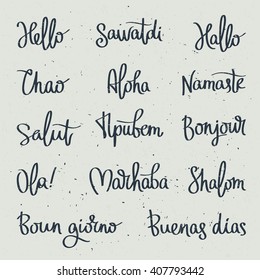 Hello Sawatdi Hallo
Chao Aloha Namaste
Salut Привет Bonjour
Ola! Marhaba Shalom
Boun giorno Buenas días
shutterstock.com · 407793442